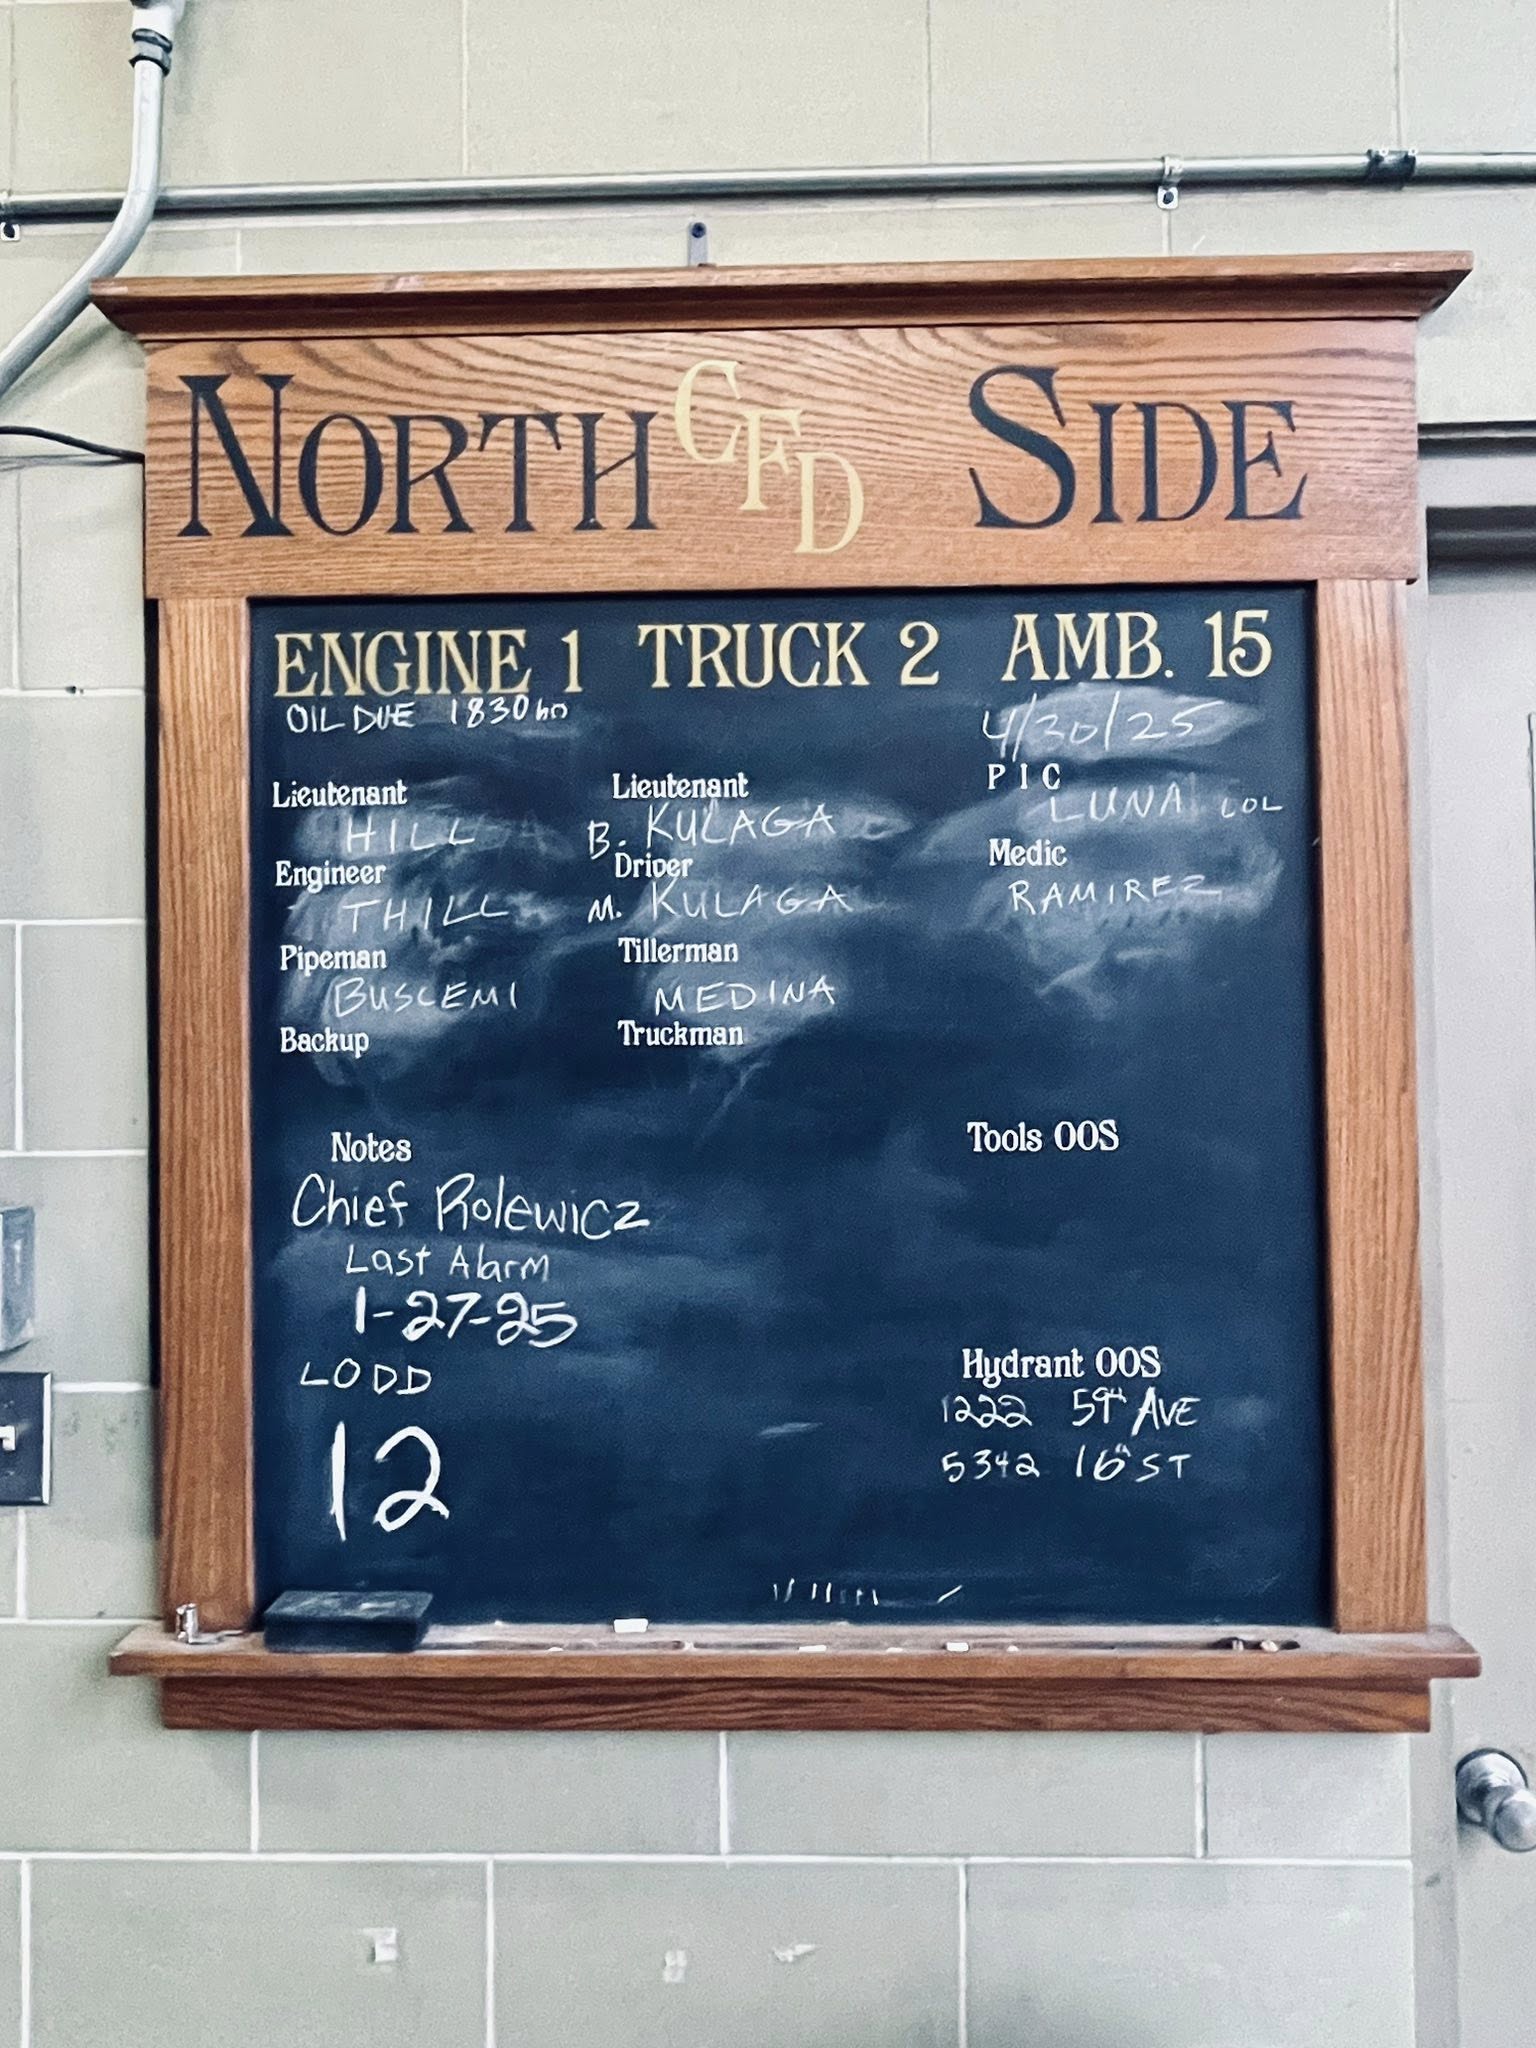 NORTH CFD SIDE
ENGINE 1 TRUCK 2 AMB. 15
OIL DUE 1830 hr
4/30/25
Lieutenant
HILL
Engineer
THILL
Pipeman
BUSCEMI
Backup
Lieutenant
B. KULAGA
Driver
M. KULAGA
Tillerman
MEDINA
Truckman
PIC
LUNA LOL
Medic
RAMIREZ
Notes
Chief Rolewicz
Last Alarm
1-27-25
LODD
12
Tools OOS
Hydrant OOS
1222 59th AVE
5342 16th ST